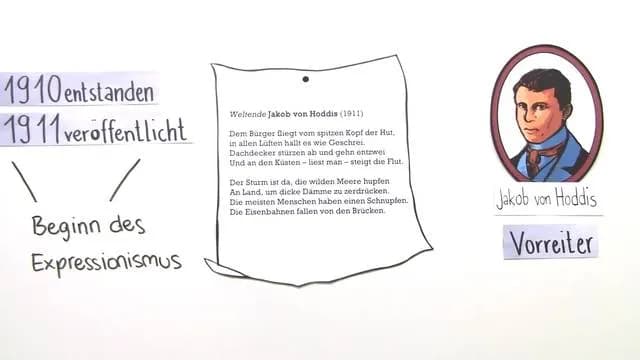 1910 entstanden
1911 veröffentlicht
Beginn des
Expressionismus
Weltende Jakob von Hoddis (1911)
Dem Bürger fliegt vom spitzen Kopf der Hut,
in allen Lüften hallt es wie Geschrei.
Dachdecker stürzen ab und gehn entzwei
Und an den Küsten – liest man – steigt die Flut.
Der Sturm ist da, die wilden Meere hupfen
An Land, um dicke Dämme zu zerdrücken.
Die meisten Menschen haben einen Schnupfen.
Die Eisenbahnen fallen von den Brücken.
Jakob von Hoddis
Vorreiter